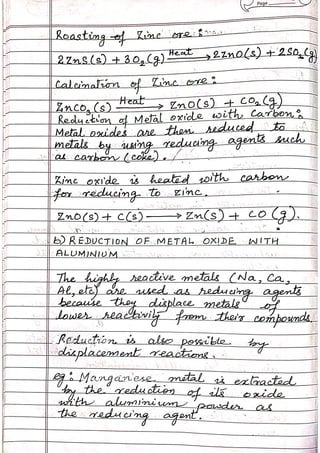 Page
Roasting of Zinc ore :
2ZnS(s) + 3O2(g) Heat → 2ZnO(s) + 2SO2(g)
Calcination of Zinc ore :
ZnCO3(s) Heat → ZnO(s) + CO2(g)
Reduction of Metal oxide with Carbon :
Metal oxides are then reduced to
metals by using reducing agents such
as carbon (coke).
Zinc oxide is heated with carbon
for reducing to zinc.
ZnO(s) + C(s) → Zn(s) + CO (g).
b) REDUCTION OF METAL OXIDE WITH
ALUMINIUM
The highly reactive metals (Na, Ca,
Al, etc) are used as reducing agents
because they displace metals of
lower reactivity from their compounds.
Reduction is also possible by
displacement reactions.
eg : Manganese metal is extracted
by the reduction of its oxide
with aluminium powder as
the reducing agent.